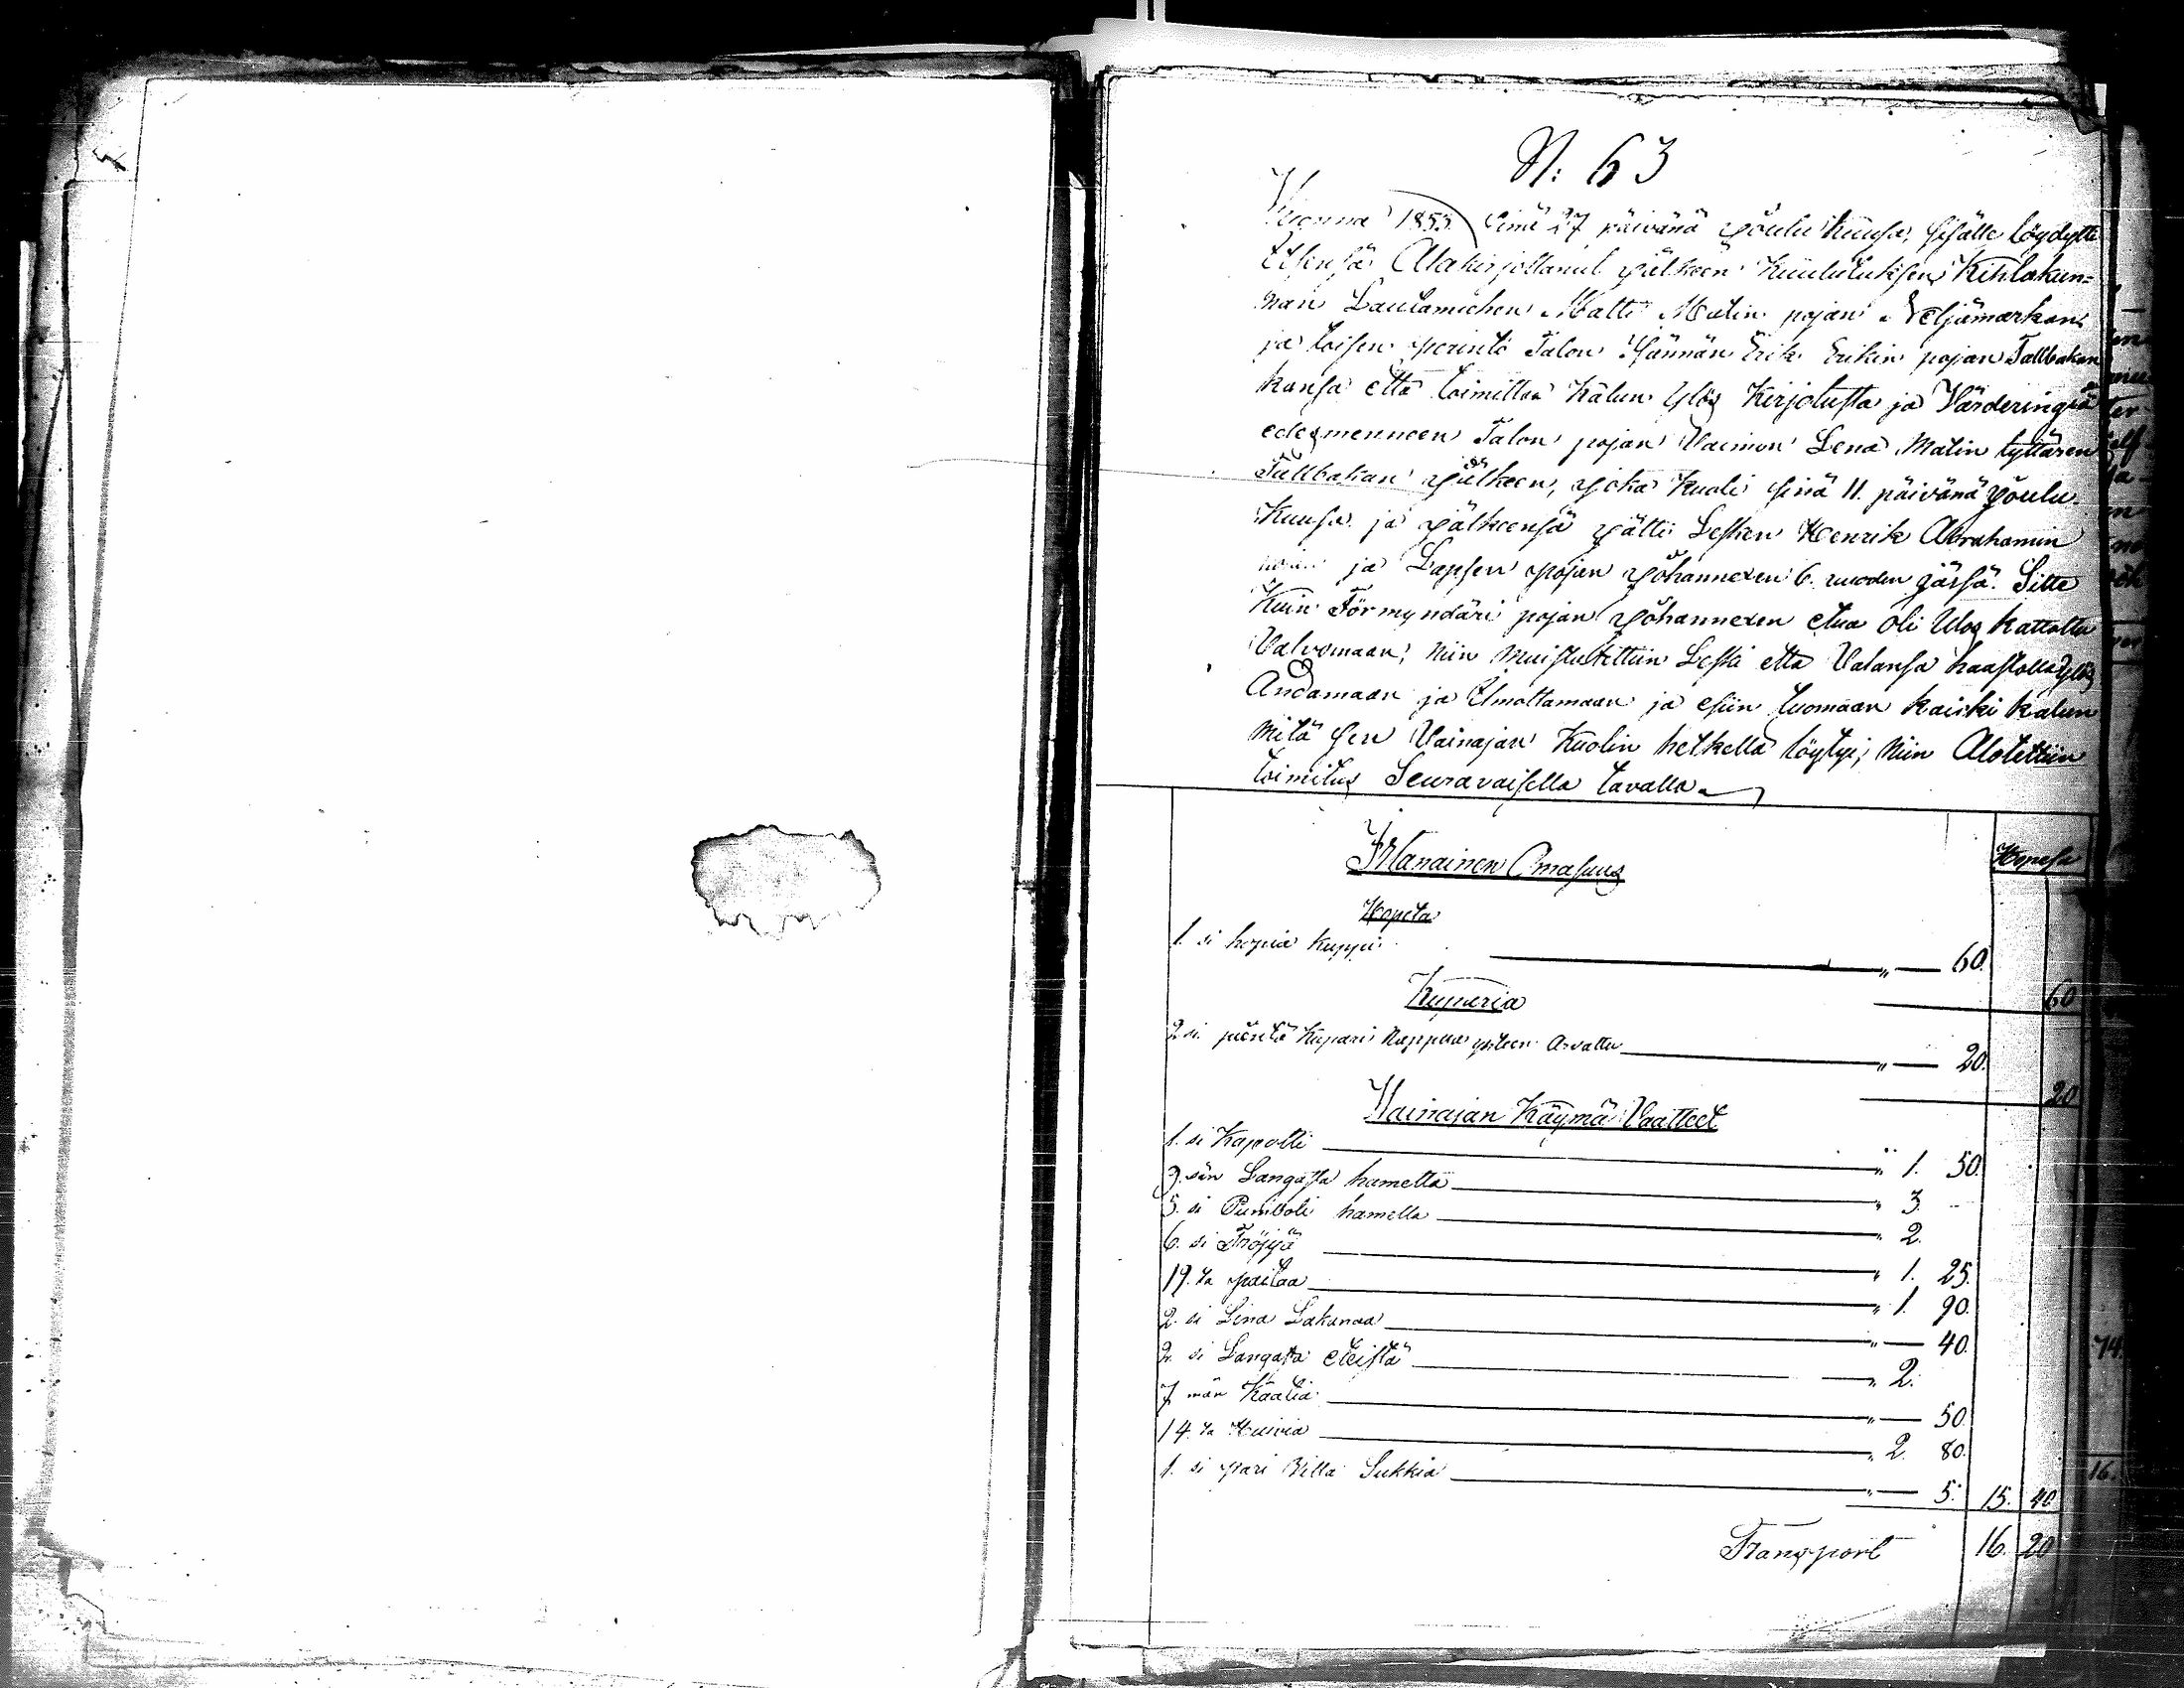 N: 63
Vuonna 1853 Sinä 27 päivänä Joulu kuusa, sisälle löydytte
Itsensä Alakirjottanut jälkeen Kuulutuksen Kihlakun=
nan Lautamiehen Matti Matin pojan Neljämarkan
ja toisen perintö Talon Isännän Erik Erikin pojan Tallbakan
kansa että toimittaa kalun ylös kirjotusta ja Värderingiä
edesmenneen Talon pojan Vaimon Lena Matin tyttären
Tallbakan jälkeen, joka kuoli sinä 11. päivänä Joulu
kuusa ja jälkeensä jätti Lesken Henrik Abrahamin
ja Lapsen pojan Johannexen 6. vuoden jässä. Sitte
Kuin Förmyndäri pojan Johannexen etua oli Ulos kattottu
Valvomaan; niin muistutettiin Leski että Valansa haastolla ylös
Andamaan ja Ilmottamaan ja esiin tuomaan kaicki kalun
mitä sen Vainajan Kuolin hetkellä löytyi; niin Alotettiin
toimitus Seuravaisella tavalla
Irtanainen Omasuus
Hopesa
Hopeta
1. si hopia kuppi " — 60.
60
Kuparia
2 si. pientä Kupari Kuppua yhteen Arvattu " — 20.
20
Vainajan Käymä Vaatteet
1. si Kapotti " 1. 50.
9. sän Langasta hametta " 3. -
5. si Pumboli hametta " 2.
6. si Tröjyä " 1. 25.
19. ta paitaa " 1. 90.
2. si Lina Lakanaa " — 40.
2. si Langasta eteistä " 2.
7 män Käätiä " — 50.
14. ta Huivia " 2. 80.
1. si pari Villa Sukkia " — 5. 15. 40
Transport 16. 20